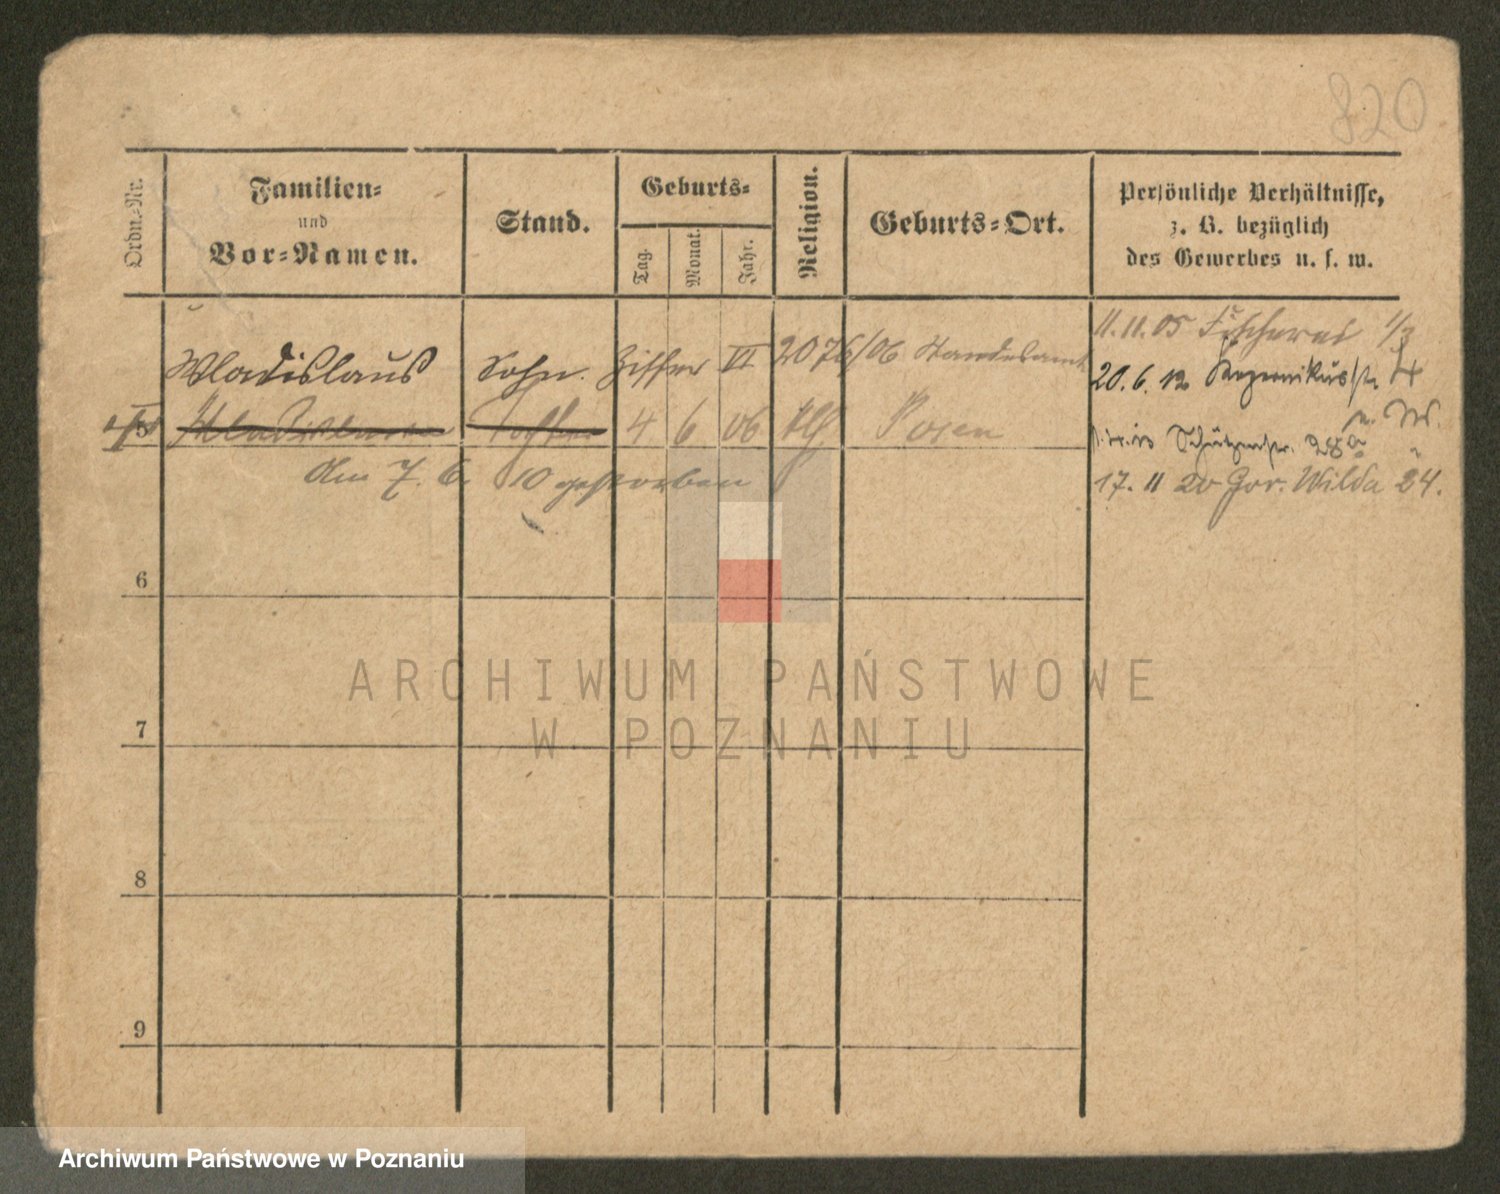 820
Ordn.-Nr.
Familien-
und
Vor-Namen.
Stand.
Geburts-
Tag.
Monat.
Jahr.
Religion.
Geburts-Ort.
Persönliche Verhältnisse,
z. B. bezüglich
des Gewerbes u. s. w.
Wladislaus Sohn. Ziffer VI 2076/06 Standesamt
5 4 6 06 Posen
am 7. 6. 10 gestorben
11.11.05 Fischerei 1/3
20. 6. 12 4
Schützenstr. 28a
17. 11 20 Gor. Wilda 24.
6
7
8
9
ARCHIWUM PAŃSTWOWE
W POZNANIU
Archiwum Państwowe w Poznaniu